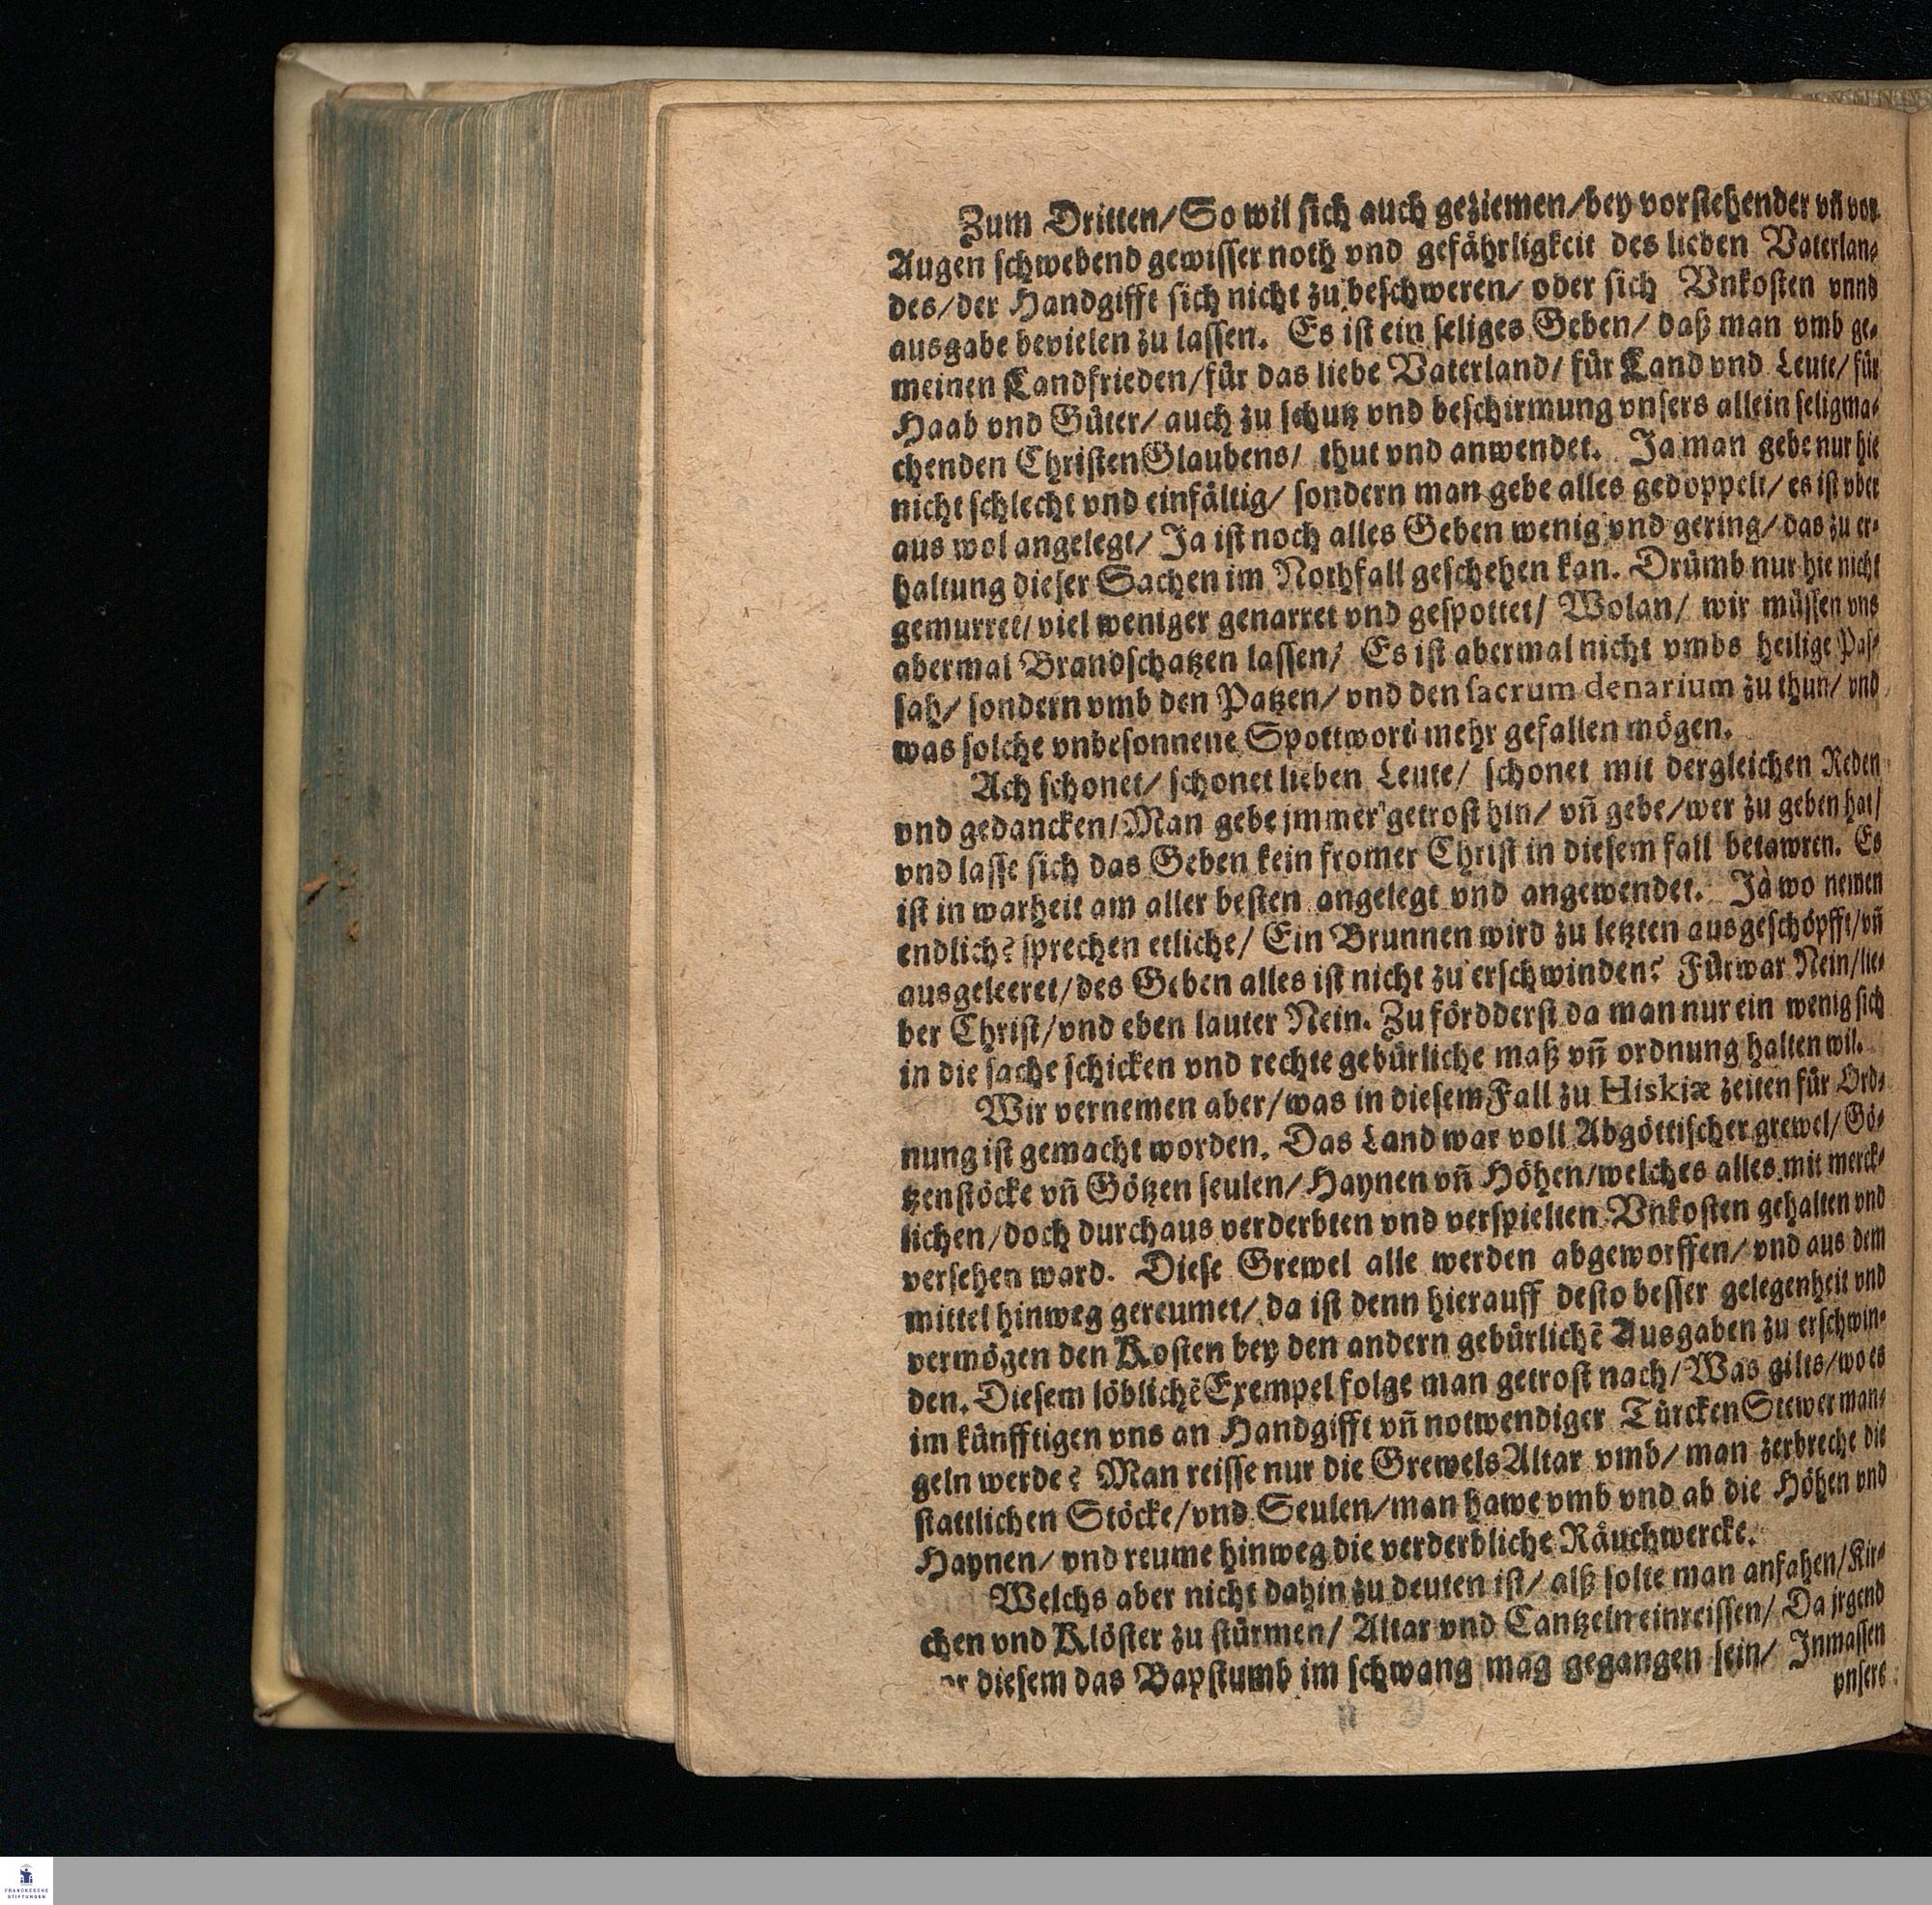 Zum Dritten/ So wil sich auch geziemen/ bey vorstehender vn̄ vor
Augen schwebend gewisser noth vnd gefährligkeit des lieben Vaterlan-
des/ der Handgifft sich nicht zu beschweren/ oder sich Vnkosten vnnd
ausgabe bevielen zu lassen. Es ist ein seliges Geben/ daß man vmb ge-
meinen Landfrieden/ für das liebe Vaterland/ für Land vnd Leute/ für
Haab vnd Güter/ auch zu schutz vnd beschirmung vnsers allein seligma-
chenden ChristenGlaubens/ thut vnd anwendet. Ja man gebe nur hie
nicht schlecht vnd einfältig/ sondern man gebe alles gedoppelt/ es ist vber
aus wol angelegt/ Ja ist noch alles Geben wenig vnd gering/ das zu er-
haltung dieser Sachen im Nothfall geschehen kan. Drümb nur hie nicht
gemurret/ viel weniger genarret vnd gespottet/ Wolan/ wir müssen vns
abermal Brandschatzen lassen/ Es ist abermal nicht vmbs heilige Pas-
sah/ sondern vmb den Patzen/ vnd den sacrum denarium zu thun/ vnd
was solche vnbesonnene Spottwort mehr gefallen mögen.
Ach schonet/ schonet lieben Leute/ schonet mit dergleichen Reden
vnd gedancken/ Man gebe jmmer getrost hin/ vn̄ gebe/ wer zu geben hat/
vnd lasse sich das Geben kein fromer Christ in diesem fall betawren. Es
ist in warheit am aller besten angelegt vnd angewendet. Ja wo nemen
endlich? sprechen etliche/ Ein Brunnen wird zu letzten ausgeschöpfft/ vn̄
ausgeleeret/ des Geben alles ist nicht zu erschwinden? Fürwar Nein/ lie-
ber Christ/ vnd eben lauter Nein. Zu fördderst da man nur ein wenig sich
in die sache schicken vnd rechte gebürliche maß vn̄ ordnung halten wil.
Wir vernemen aber/ was in diesem Fall zu Hiskiæ zeiten für Ord-
nung ist gemacht worden. Das Land war voll Abgöttischer grewel/ Gö-
tzenstöcke vn̄ Götzen seulen/ Haynen vn̄ Höhen/ welches alles mit merck-
lichen/ doch durchaus verderbten vnd verspielten Vnkosten gehalten vnd
versehen ward. Diese Grewel alle werden abgeworffen/ vnd aus dem
mittel hinweg gereumet/ da ist denn hierauff desto besser gelegenheit vnd
vermögen den Kosten bey den andern gebürlichẽ Ausgaben zu erschwin-
den. Diesem löblichẽ Exempel folge man getrost nach/ Was gilts/ wo es
im künfftigen vns an Handgifft vn̄ notwendiger TürckenStewer man-
geln werde? Man reisse nur die GrewelsAltar vmb/ man zerbreche die
stattlichen Stöcke/ vnd Seulen/ man hawe vmb vnd ab die Höhen vnd
Haynen/ vnd reume hinweg die verderbliche Räuchwercke.
Welchs aber nicht dahin zu deuten ist/ alß solte man anfahen/ Kir-
chen vnd Klöster zu stürmen/ Altar vnd Cantzeln einreissen/ Da jrgend
diesem das Bapstumb im schwang mag gegangen sein/ Inmassen
vnsere
FRANCKESCHE
STIFTUNGEN